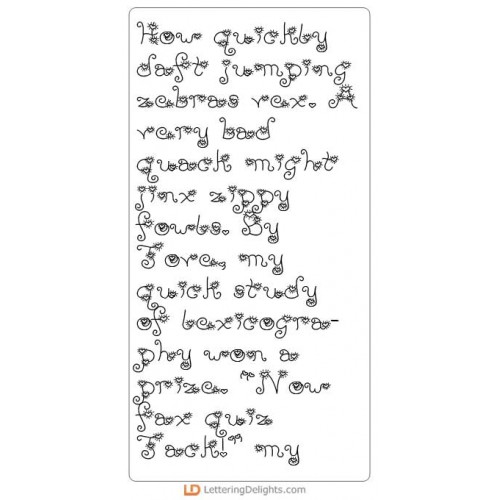 How quickly
daft jumping
zebras vex. A
very bad
quack might
jinx zippy
fowls. By
Jove, my
quick study
of lexicogra-
phy won a
prize. "Now
fax quiz
Jack!" my
LD LetteringDelights.com